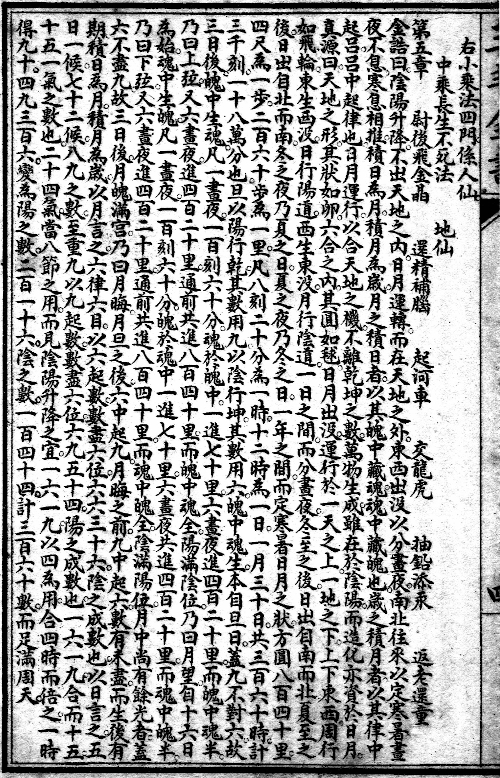 右小乘法四門係人仙
中乘長生不死法　地仙
第五章　尉後飛金晶　還精補腦　起河車　交龍虎　抽鉛添汞　返老還童
金誥曰陰陽升降不出天地之内日月運轉而在天地之外東西出没以分晝夜南北往來以定寒暑晝
夜不息寒暑相推積日為月積月為歲月之積日者以其魄中藏魂魂中藏魄也歲之積月者以其律中
起呂呂中起律也日月運行以合天地之機不離乾坤之數萬物生成雖在於陰陽而造化亦資於日月
真源曰天地之形其狀如卵六合之内其圓如毬日月出没運行於一天之上一地之下上下東西周行
如飛輪東生西没日行陽道西生東没月行陰道一日之間而分晝夜冬至之後日出自南而北夏至之
後日出自北而南冬之夜乃夏之日夏之夜乃冬之日一年之間而定寒暑日月之狀方圓八百四十里
四尺為一步二百六十步為一里凡八刻二十分為一時十二時為一日一月三十日共三百六十時計
三千刻一十八萬分也且以陽行乾其數用九以陰行坤其數用六魄中魂生本自旦日蓋九不對六故
三日後魄中生魂凡一晝夜一百刻六十分魂於魄中一進七十里六晝夜進四百二十里而魄中魂半
乃曰上弦又六晝夜進四百二十里通前共進八百四十里而魄中魂全陽滿陰位乃曰月望自十六日
為始魂中生魄凡一晝夜一百刻六十分魄於魂中一進七十里六晝夜共進四百二十里而魂中魄半
乃曰下弦又六晝夜進四百二十里通前共進八百四十里而魂中魄全陰滿陽位月中尚有餘光者蓋
六不盡九故三日後月魄滿宮乃曰月晦月旦之後六中起九月晦之前九中起六數有未盡而生後有
期積日為月積月為歲以月言之六律六呂以六起數數盡六位六六三十六陰之成數也以日言之五
日一候七十二候八九之數至重九以九起數數盡六位六九五十四陽之成數也一六一九合而十五
十五一氣之數也二十四氣當八節之用而見陰陽升降之宜一六一九以四為用合四時而倍之一時
得九十四九三百六十變為陽之數二百一十六陰之數一百四十四計三百六十數而足滿周天